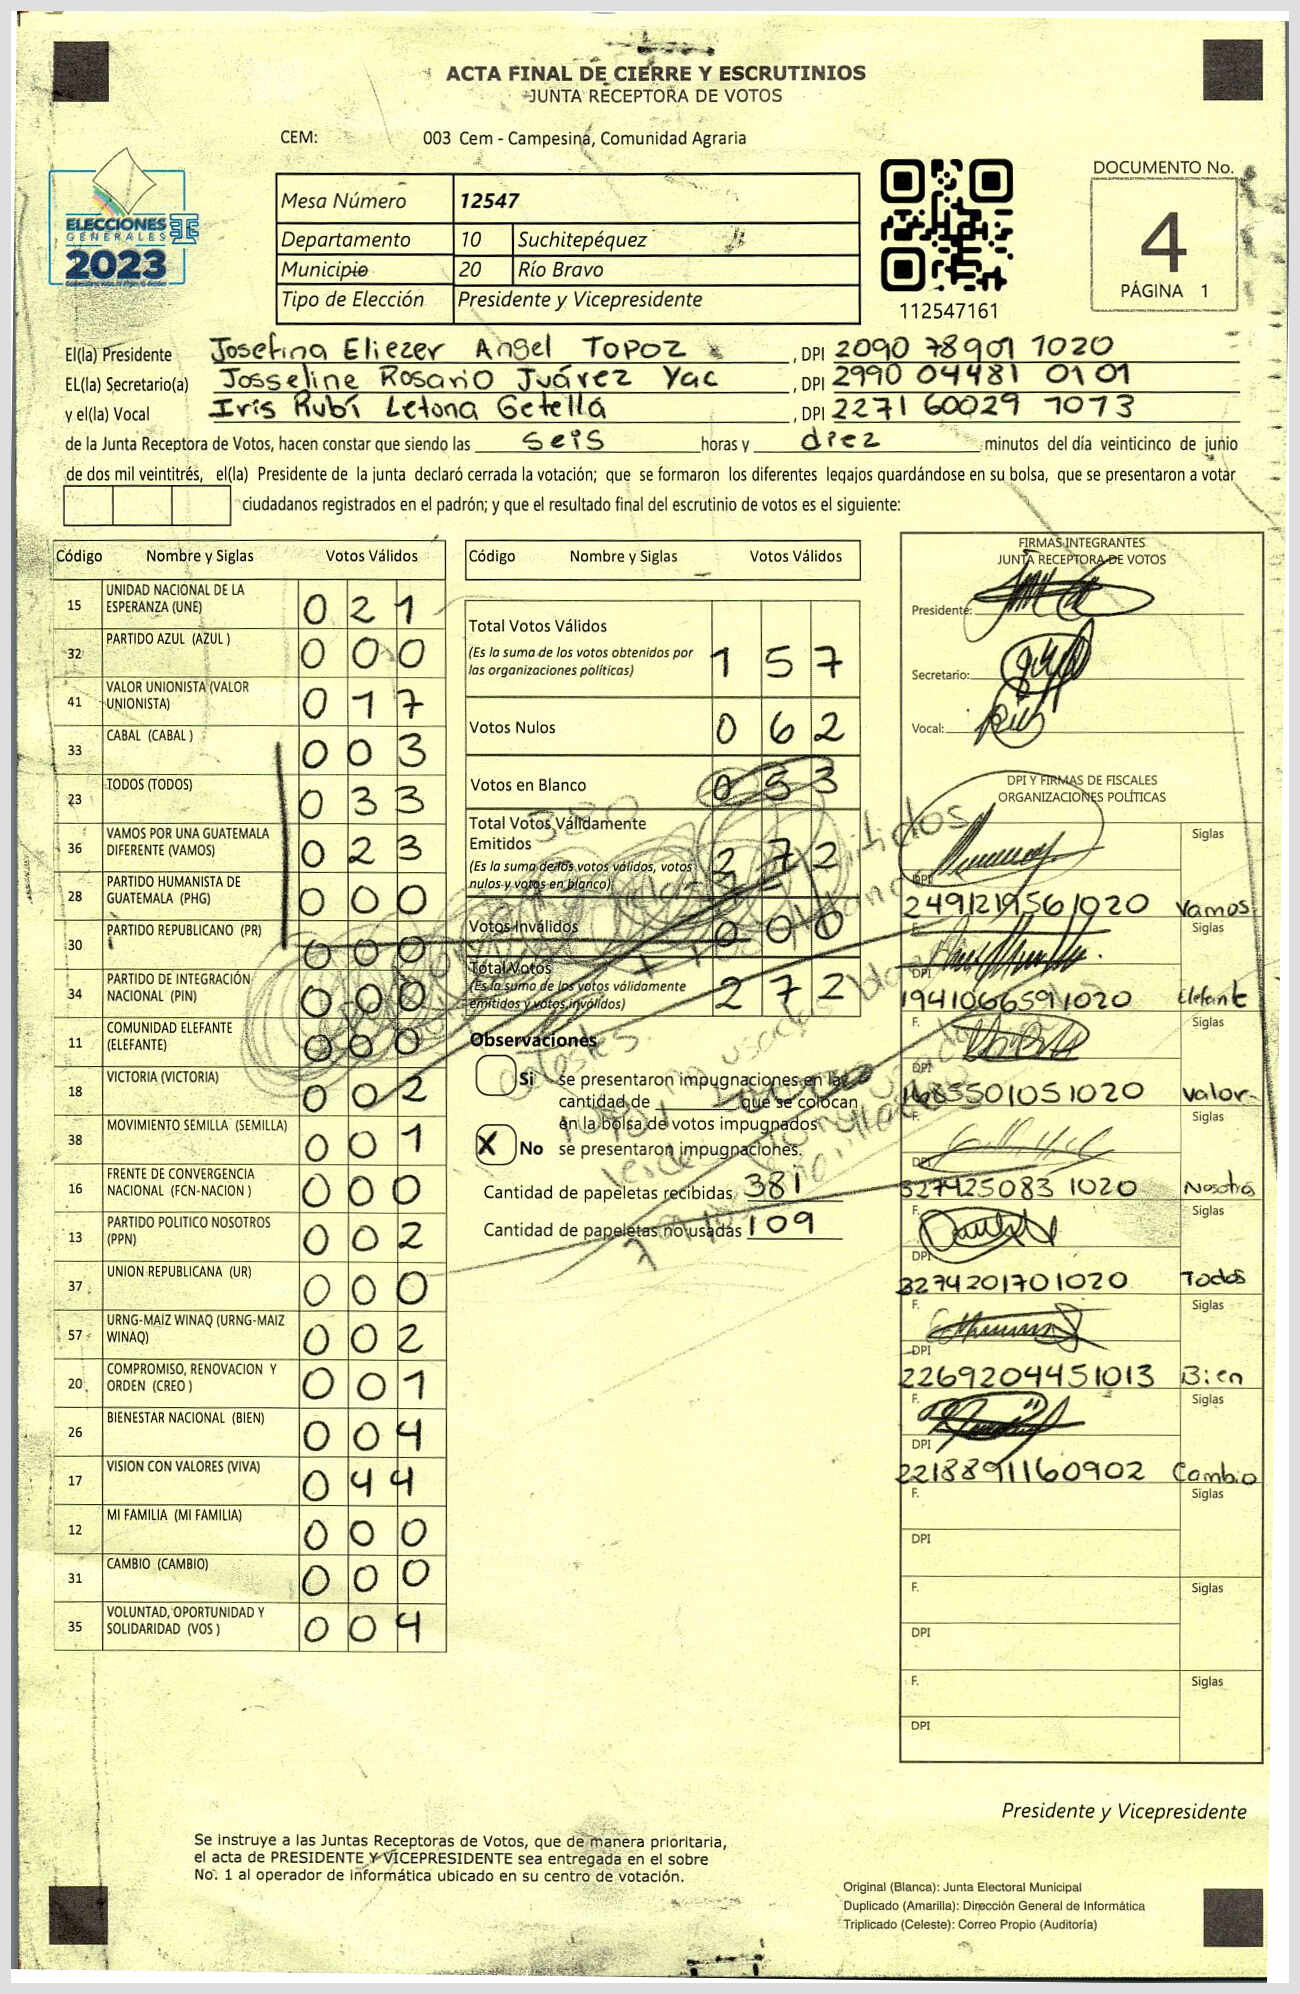 ACTA FINAL DE CIERRE Y ESCRUTINIOS
JUNTA RECEPTORA DE VOTOS
CEM: 003 Cem - Campesina, Comunidad Agraria
ELECCIONES
GENERALES
2023
Mesa Número 12547
Departamento 10 Suchitepéquez
Municipio 20 Río Bravo
Tipo de Elección Presidente y Vicepresidente
112547161
DOCUMENTO No.
4
PÁGINA 1
El(la) Presidente Josefina Eliezer Angel Topoz, DPI 2090 78901 1020
EL(la) Secretario(a) Josseline Rosario Juárez Yac, DPI 2990 04481 0101
y el(la) Vocal Iris Rubí Letona Getellá, DPI 2271 60029 1013
de la Junta Receptora de Votos, hacen constar que siendo las seis horas y diez minutos del día veinticinco de junio
de dos mil veintitrés, el(la) Presidente de la junta declaró cerrada la votación; que se formaron los diferentes legajos guardándose en su bolsa, que se presentaron a votar
ciudadanos registrados en el padrón; y que el resultado final del escrutinio de votos es el siguiente:
Código Nombre y Siglas Votos Válidos
15 UNIDAD NACIONAL DE LA ESPERANZA (UNE) 0 2 1
32 PARTIDO AZUL (AZUL ) 0 0 0
41 VALOR UNIONISTA (VALOR UNIONISTA) 0 1 7
33 CABAL (CABAL ) 0 0 3
23 TODOS (TODOS) 0 3 3
36 VAMOS POR UNA GUATEMALA DIFERENTE (VAMOS) 0 2 3
28 PARTIDO HUMANISTA DE GUATEMALA (PHG) 0 0 0
30 PARTIDO REPUBLICANO (PR) 0 0 0
34 PARTIDO DE INTEGRACIÓN NACIONAL (PIN) 0 0 0
11 COMUNIDAD ELEFANTE (ELEFANTE) 0 0 0
18 VICTORIA (VICTORIA) 0 0 2
38 MOVIMIENTO SEMILLA (SEMILLA) 0 0 1
16 FRENTE DE CONVERGENCIA NACIONAL (FCN-NACION ) 0 0 0
13 PARTIDO POLITICO NOSOTROS (PPN) 0 0 2
37 UNION REPUBLICANA (UR) 0 0 0
57 URNG-MAIZ WINAQ (URNG-MAIZ WINAQ) 0 0 2
20 COMPROMISO, RENOVACION Y ORDEN (CREO ) 0 0 1
26 BIENESTAR NACIONAL (BIEN) 0 0 4
17 VISION CON VALORES (VIVA) 0 4 4
12 MI FAMILIA (MI FAMILIA) 0 0 0
31 CAMBIO (CAMBIO) 0 0 0
35 VOLUNTAD, OPORTUNIDAD Y SOLIDARIDAD (VOS ) 0 0 4
Código Nombre y Siglas Votos Válidos
Total Votos Válidos 1 5 7
(Es la suma de los votos obtenidos por
las organizaciones políticas)
Votos Nulos 0 6 2
Votos en Blanco 0 5 3
Total Votos Válidamente
Emitidos 2 7 2
(Es la suma de los votos válidos, votos
nulos y votos en blanco)
Votos Inválidos 0 0 0
Total Votos 2 7 2
(Es la suma de los votos válidamente
emitidos y votos inválidos)
Observaciones
Si se presentaron impugnaciones en la
cantidad de ______ que se colocan
en la bolsa de votos impugnados
X No se presentaron impugnaciones.
Cantidad de papeletas recibidas 381
Cantidad de papeletas no usadas 109
FIRMAS INTEGRANTES
JUNTA RECEPTORA DE VOTOS
Presidente:
Secretario:
Vocal:
DPI Y FIRMAS DE FISCALES
ORGANIZACIONES POLÍTICAS
Siglas
DPI
2491219561020 Vamos
F. Siglas
DPI
1941066591020 Elefante
F. Siglas
DPI
1685501051020 Valor-
F. Siglas
DPI
327425083 1020 Nosotros
F. Siglas
DPI
3274201701020 Todos
F. Siglas
DPI
2269204451013 Bien
F. Siglas
DPI
2218891160902 Cambio
F. Siglas
DPI
F. Siglas
DPI
F. Siglas
DPI
Presidente y Vicepresidente
Se instruye a las Juntas Receptoras de Votos, que de manera prioritaria,
el acta de PRESIDENTE Y VICEPRESIDENTE sea entregada en el sobre
No. 1 al operador de informática ubicado en su centro de votación.
Original (Blanca): Junta Electoral Municipal
Duplicado (Amarilla): Dirección General de Informática
Triplicado (Celeste): Correo Propio (Auditoría)